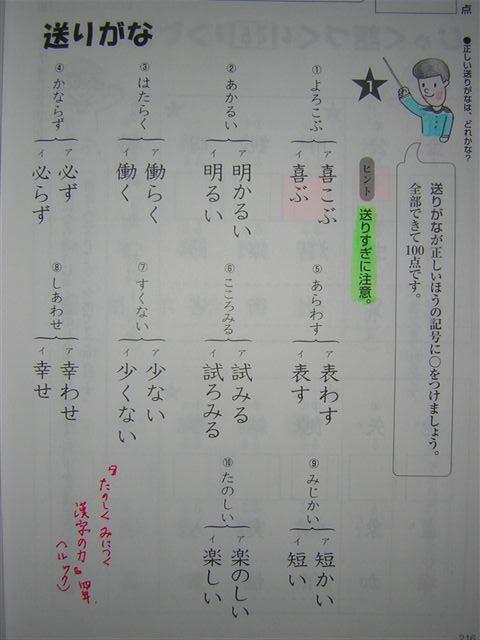 点
●正しい送りがなは、どれかな?
送りがなが正しいほうの記号に○をつけましょう。
全部できて100点です。
1
ヒント
送りすぎに注意。
送りがな
①よろこぶ
ア 喜こぶ
イ 喜ぶ
②あかるい
ア 明かるい
イ 明るい
③はたらく
ア 働らく
イ 働く
④かならず
ア 必ず
イ 必らず
⑤あらわす
ア 表わす
イ 表す
⑥こころみる
ア 試みる
イ 試ろみる
⑦すくない
ア 少ない
イ 少くない
⑧しあわせ
ア 幸わせ
イ 幸せ
⑨みじかい
ア 短かい
イ 短い
⑩たのしい
ア 楽のしい
イ 楽しい
たのしくみにつく
漢字の力
216